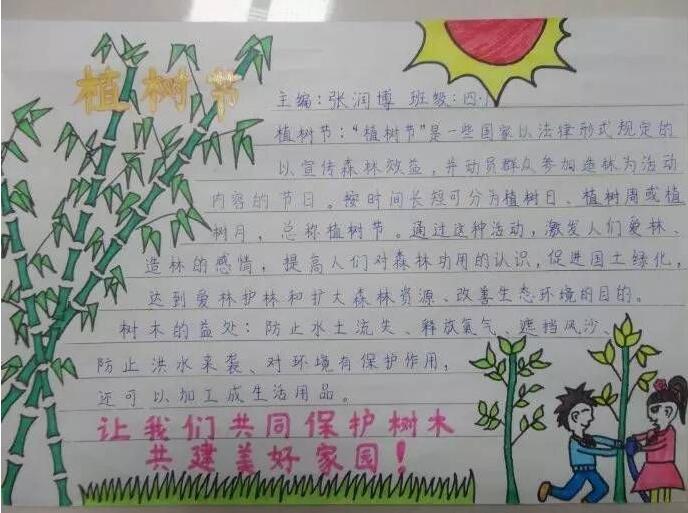 植树节
主编:张润博 班级:四·1
植树节:“植树节”是一些国家以法律形式规定的
以宣传森林效益,并动员群众参加造林为活动
内容的节日。按时间长短可分为植树日、植树周或植
树月,总称植树节。通过这种活动,激发人们爱林、
造林的感情,提高人们对森林功用的认识,促进国土绿化,
达到爱林护林和扩大森林资源、改善生态环境的目的。
树木的益处:防止水土流失、释放氧气、遮挡风沙、
防止洪水来袭、对环境有保护作用,
还可以加工成生活用品。
让我们共同保护树木
共建美好家园!